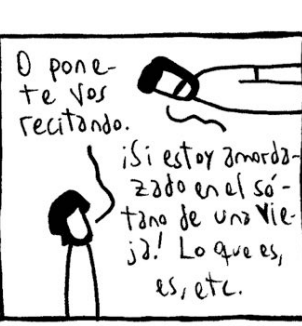 O pone-
te vos
recitando.
¡Si estoy amorda-
zado en el só-
tano de una vie-
ja! Lo que es,
es, etc.